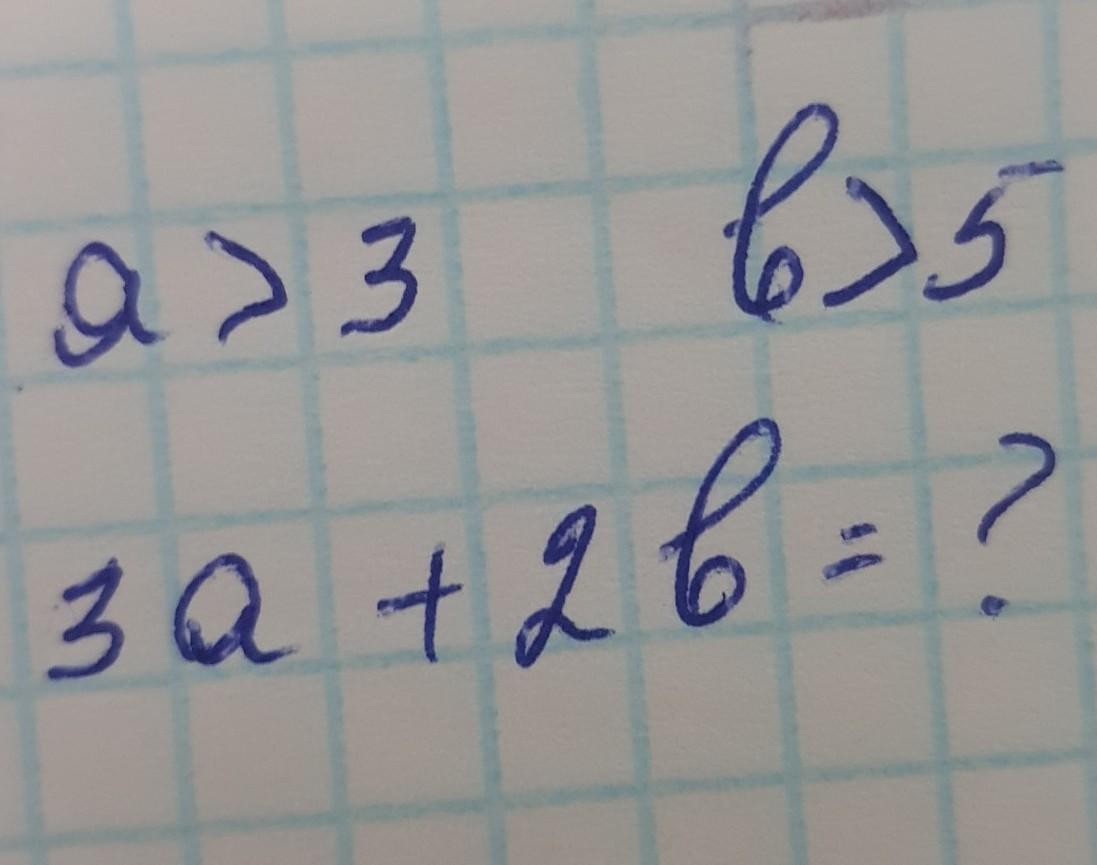 a > 3 b > 5
3a + 2b = ?